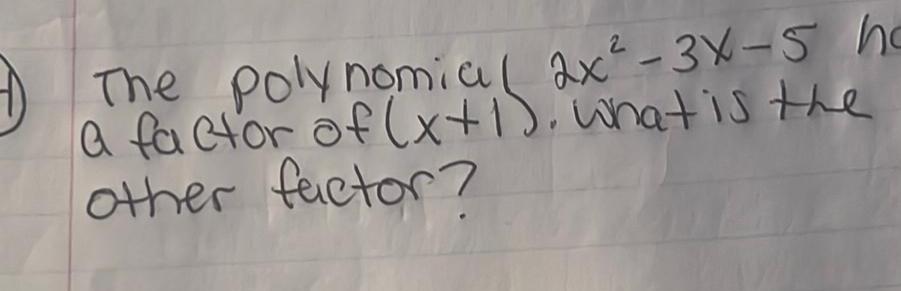 The polynomial 2x² - 3x - 5
a factor of (x+1). What is the
other factor?